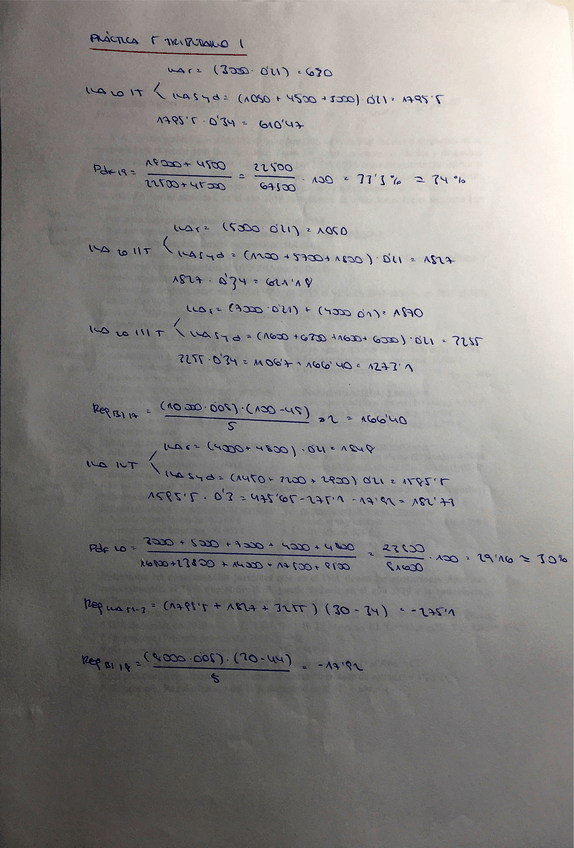 PRÁCTICA 5 TRIBUTARIO I
IVAr = (3000 · 0'21) = 630
IVA 20 IT < IVAsyd = (1050 + 4500 + 3000) · 0'21 = 1795'5
1795'5 · 0'34 = 610'47
Pdef 19 = 18000 + 4500 / 22500 + 45000 = 22500 / 67500 · 100 = 33'3 % ≅ 34 %
IVAr = (5000 · 0'21) = 1050
IVA 20 IIT < IVAsyd = (1200 + 5700 + 1800) · 0'21 = 1827
1827 · 0'34 = 621'18
IVAr = (7000 · 0'21) + (4000 · 0'1) = 1870
IVA 20 IIIT < IVAsyd = (1600 + 6300 + 1600 + 6000) · 0'21 = 3255
3255 · 0'34 = 1106'7 + 166'40 = 1273'1
Reg BI 17 = (10000 · 0'05) · (100 - 45) / 5 = 166'40
IVAr = (4000 + 4800) · 0'21 = 1848
IVA IVT < IVAsyd = (1450 + 3200 + 2900) · 0'21 = 1585'5
1585'5 · 0'3 = 475'65 - 275'1 - 17'92 = 182'77
Pdef 20 = 3000 + 5000 + 7000 + 4000 + 4800 / 16800 + 23800 + 14000 + 17500 + 9500 = 23800 / 81600 · 100 = 29'16 ≅ 30%
Reg IVA S 1-3 = (1795'5 + 1827 + 3255) (30 - 34) = -275'1
Reg BI 19 = (8000 · 0'05) · (30 - 44) / 5 = -17'92